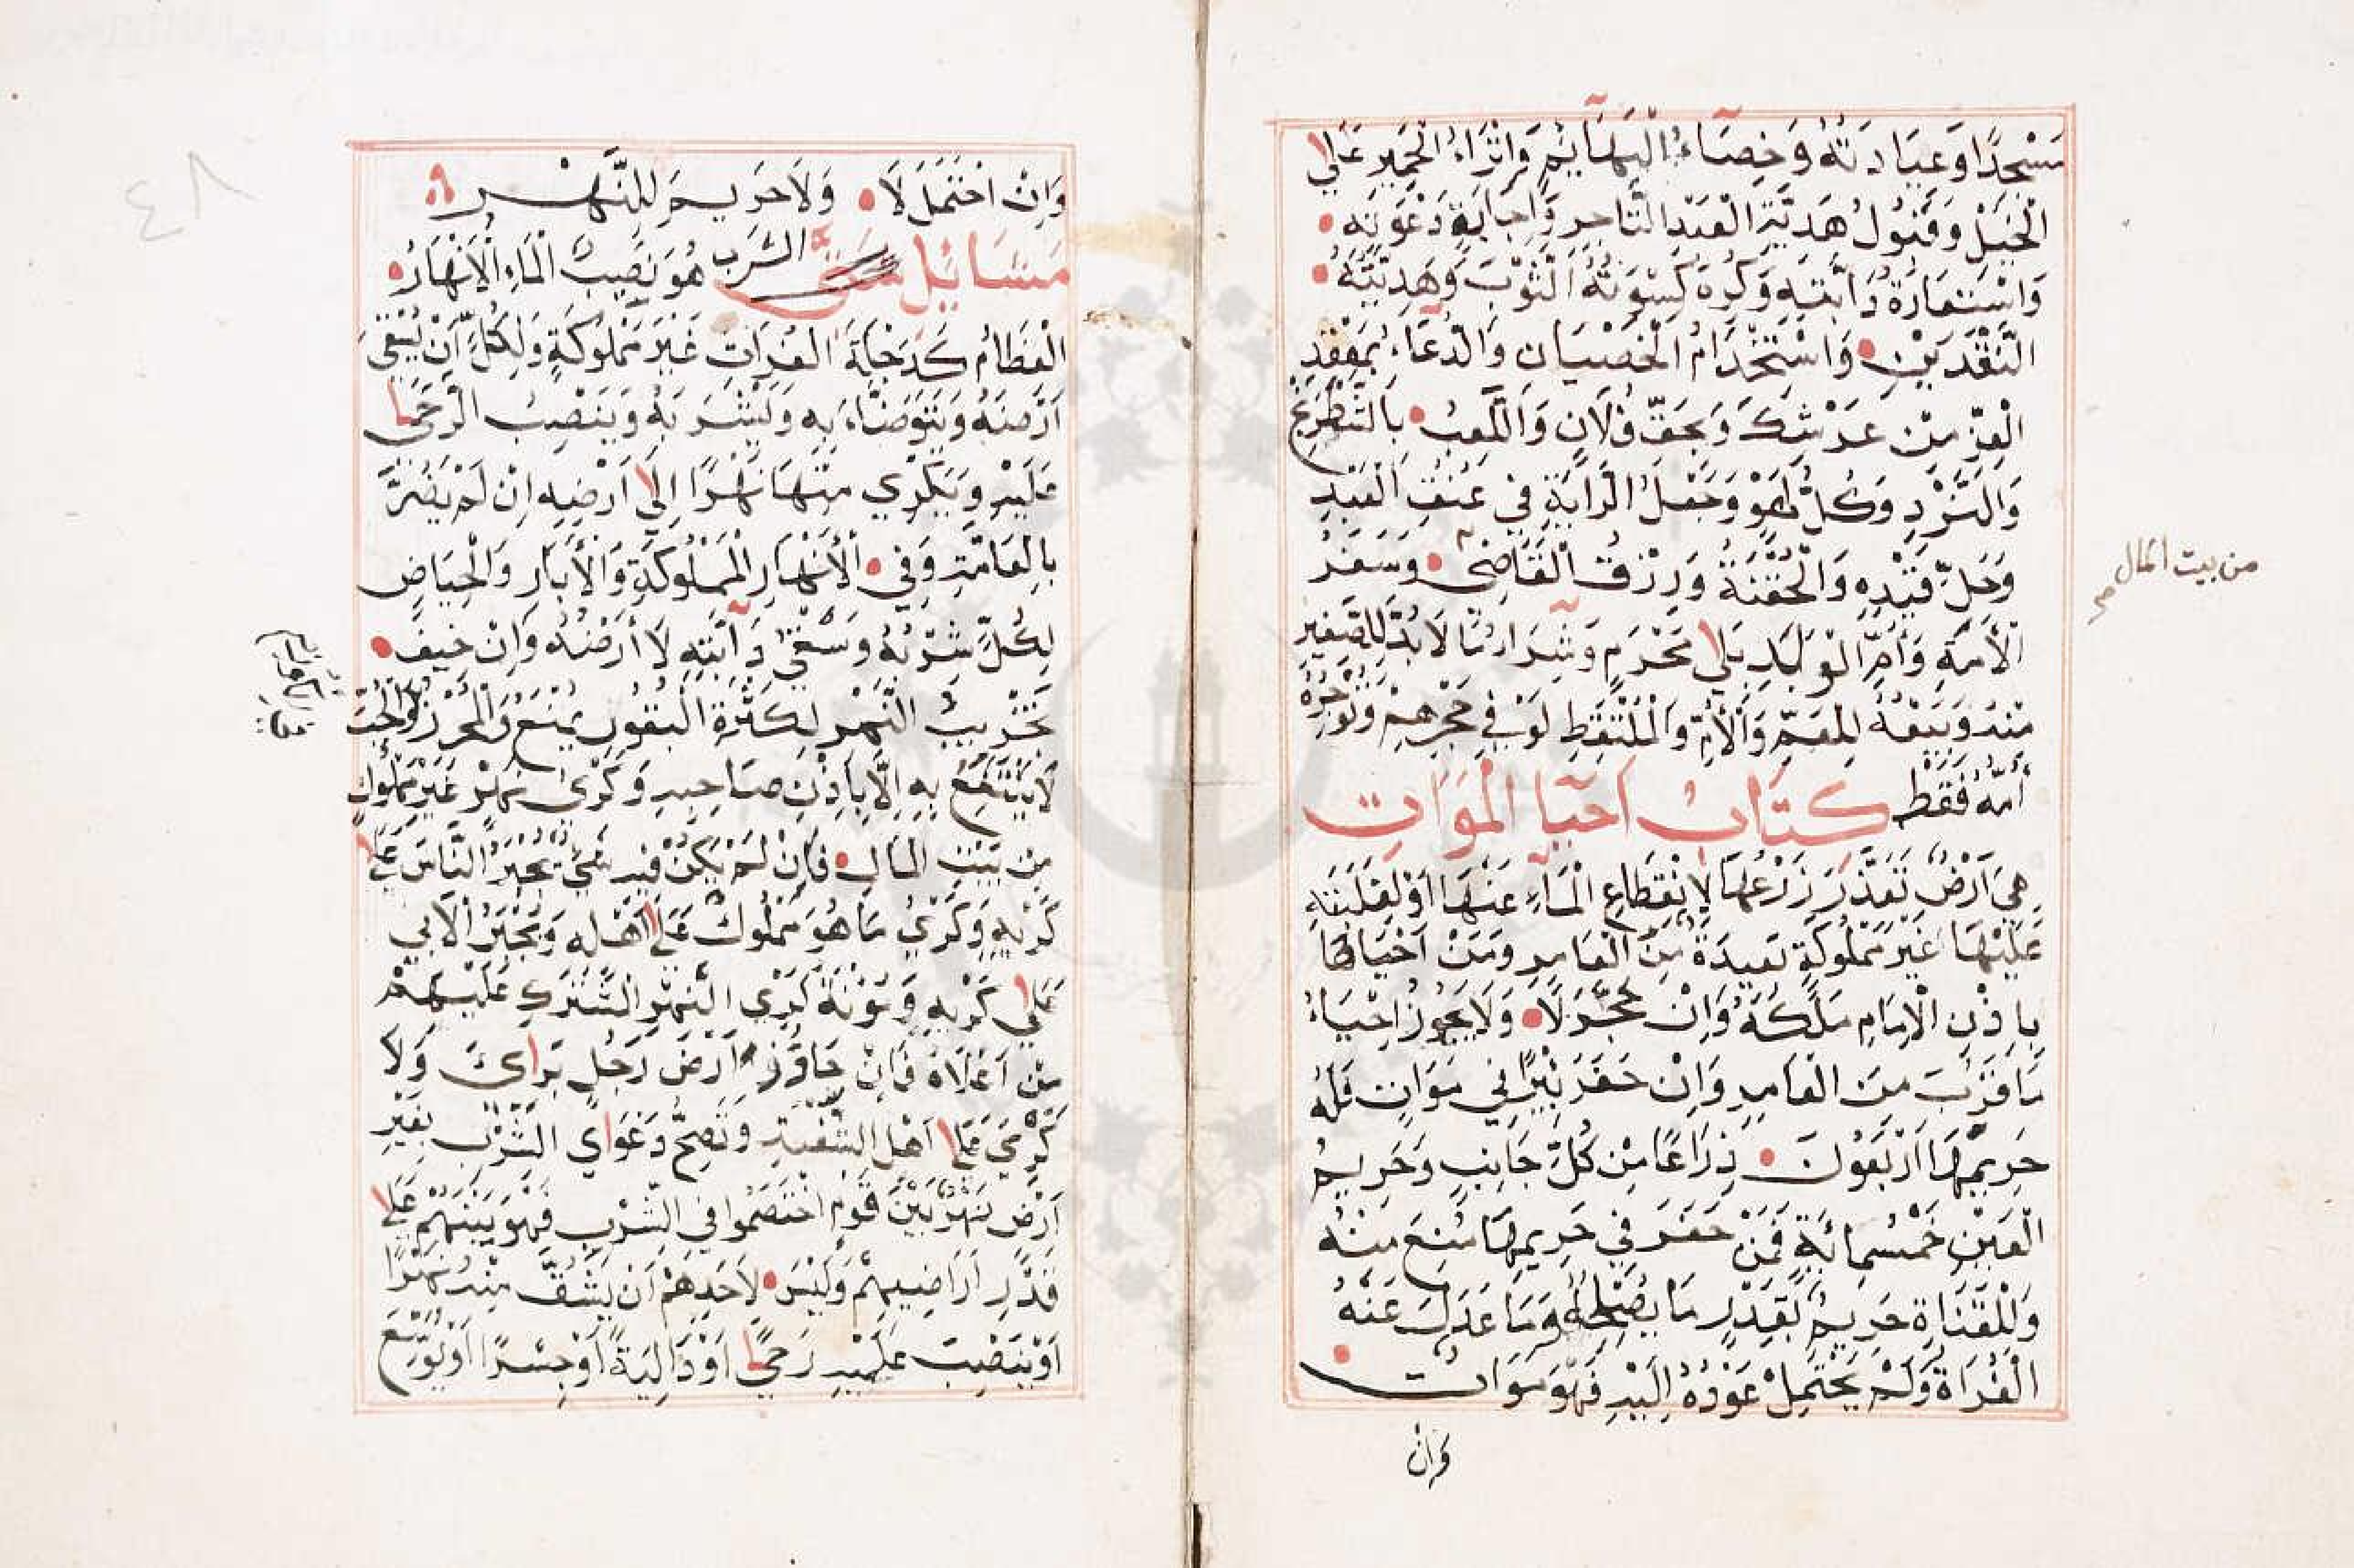 مَسْجِدًا وَعِيَادَتُهُ وَخِصَاءُ الْبَهَائِمِ وَاِنْزَاءُ الْحَمِيرِ عَلَى
الْخَيْلِ وَقَبُولُ هَدِيَّةِ الْعَبْدِ التَّاجِرِ وَاِجَابَةِ دَعْوَتِهِ
وَاسْتِعَارَةُ دَابَّتِهِ وَكُرِهَ كِسْوَتُهُ الثَّوْبَ وَهَدِيَّتُهُ
النَّقْدَيْنِ وَاسْتِخْدَامُ الْخِصْيَانِ وَالدُّعَاءُ بِمَعْقِدِ
الْعِزِّ مِنْ عَرْشِكَ وَبِحَقِّ فُلَانٍ وَاللَّعِبُ بِالشَّطْرَنْجِ
وَالنَّرْدِ وَكُلُّ لَهْوٍ وَجَعْلُ الرَّايَةِ فِي عُنُقِ الْعَبْدِ
وَحَلَّ قَيْدِهِ وَالْحُقْنَةُ وَرِزْقُ الْقَاضِى وَسَفَرُ
من بيت المال صح
الْاَمَةِ وَاُمِّ الْوَلَدِ بَلَا مَحْرَمٍ وَشِرَاءُ مَا لَا بُدَّ لِلصَّغِيرِ
مِنْهُ وَبَيْعُهُ لِلْعَمِّ وَالْأُمِّ وَالْمُلْتَقِطِ لَوْ فِي حَجْرِهِمْ وَتُؤْجِرُهُ
أُمُّهُ فَقَطْ كتاب احيا الموات
هِيَ اَرْضٌ تَعَذَّرَ زَرْعُهَا لِانْقِطَاعِ الْمَاءِ عَنْهَا اَوْ لِغَلَبَتِهِ
عَلَيْهَا غَيْرَ مَمْلُوكَةٍ بَعِيدَةً مِنَ الْعَامِرِ وَمَنْ اَحْيَاهَا
بِاِذْنِ الْاِمَامِ مَلَكَهُ وَاِنْ حَجَّرَ لَا وَلَا يَجُوزُ اِحْيَاءُ
مَا قَرُبَ مِنَ الْعَامِرِ وَاِنْ حَفَرَ بِيْرًا فِي مَوَاتٍ فَلَهُ
حَرِيمُهَا اَرْبَعُونَ ذِرَاعًا مِنْ كُلِّ جَانِبٍ وَحَرِيمُ
الْعَيْنِ خَمْسُمِائَةٍ فَمَنْ حَفَرَ فِي حَرِيمِهَا مُنِعَ مِنْهُ
وَلِلْقَنَاةِ حَرِيمٌ بِقَدْرِ مَا يُصْلِحُهُ وَمَا عَدَلَ عَنْهُ
الْفُرَاةُ وَلَمْ يَحْتَمِلْ عَوْدُهُ اِلَيْهِ فَهُوَ مَوَات
وان
٤٨
وَاِنْ اِحْتَمَلَ لَا وَلَا حَرِيمَ لِلنَّهْرِ
مَسَائِلُ الشرب هُوَ نَصِيبُ الْمَاءِ الْاَنْهَارُ
الْعِظَامُ كَدَجْلَةَ الْفُرَاتِ غَيْرَ مَمْلُوكَةٍ وَلِكُلٍّ اَنْ يُسْقِىَ
اَرْضَهُ وَيَتَوَضَّاءَ بِهِ وَيَشْرَبَهُ وَيَنْصِبُ الرَّحَى
عَلَيْهِ وَيَكْرِي مِنْهَا نَهْرًا اِلَى اَرْضِهِ اِنْ لَمْ يَضُرَّ
بِالْعَامَّةِ وَفِي الْأَنْهَارِ الْمَمْلُوكَةِ وَالْأَبَارِ وَالْحِيَاضِ
لِكُلٍّ شُرْبُهُ وَسَقْيُ دَابَّتِهِ لَا أَرْضَهُ وَاِنْ خِيفَ
تَخْرِيبُ النَّهْرِ لِكَثْرَةِ الْبُقُورِ يُمْنَعُ وَالْمُحْرَزُ وَالْجُبِّ
لَا يُنْتَفَعُ بِهِ اِلَّا بِاِذْنِ صَاحِبِهِ وَكَرْيُ نَهْرٍ غَيْرِ مَمْلُوكٍ
مِنْ بَيْتِ الْمَالِ فَاِنْ لَمْ يَكُنْ فِيهِ شَيْءٌ يُجْبَرُ النَّاسُ عَلَى
كَرْيِهِ وَكَرْيُ مَا هُوَ مَمْلُوكٌ عَلَى اَهْلِهِ وَيُجْبَرُ الْاَبِي
عَلَى كَرْيِهِ وَمُؤْنَةُ كَرْيِ النَّهْرِ الْمُشْتَرَكِ عَلَيْهِمْ
مِنْ اَعْلَاهُ فَاِنْ جَاوَزَ اَرْضَ رَجُلٍ بَرِاىَٔ وَلَا
كَرْيَ عَلَى اَهْلِ الشَّفَةِ وَتَصِحُّ دَعْوَاي الشُّرْبِ بِغَيْرِ
اَرْضٍ نَهْرٌ بَيْنَ قَوْمٍ اخْتَصَمُوا فِي الشُّرْبِ فَهُوَ بَيْنَهُمْ عَلَى
قَدْرِ اَرَاضِيهِمْ وَلَيْسَ لِاَحَدِهِمْ اَنْ يَشُقَّ مِنْهُ نَهْرًا
اَوْ يَنْصِبَ عَلَيْهِ رَحًى اَوْ دَالِيَةً اَوْ جِسْرًا اَوْ يُوَسِّعَ